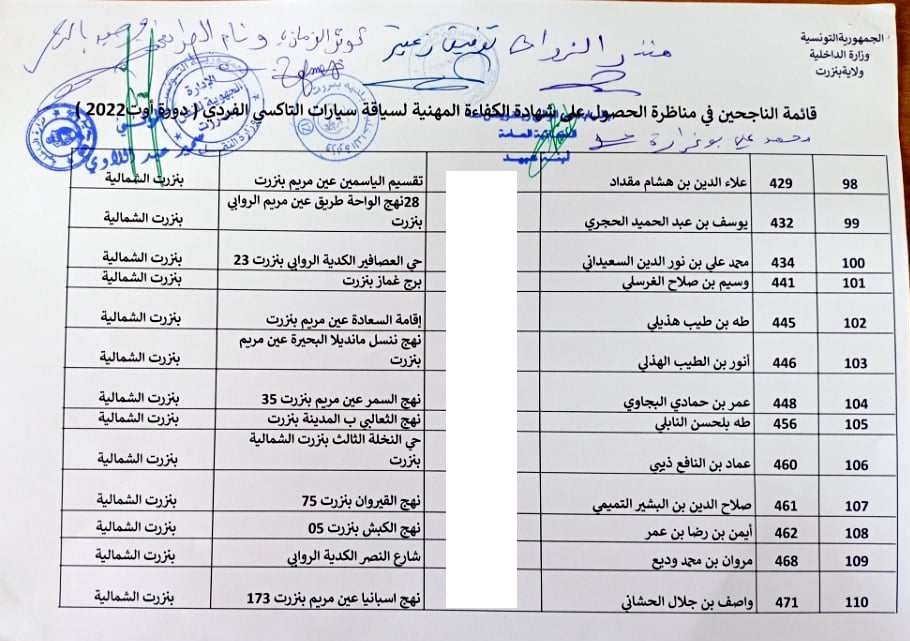 الجمهورية التونسية
وزارة الداخلية
ولاية بنزرت
قائمة الناجحين في مناظرة الحصول على شهادة الكفاءة المهنية لسياقة سيارات التاكسي الفردي ( دورة أوت2022 )
98 429 علاء الدين بن هشام مقداد تقسيم الياسمين عين مريم بنزرت بنزرت الشمالية
99 432 يوسف بن عبد الحميد الحجري 28نهج الواحة طريق عين مريم الروابي بنزرت بنزرت الشمالية
100 434 محمد علي بن نور الدين السعيداني حي العصافير الكدية الروابي بنزرت 23 بنزرت الشمالية
101 441 وسيم بن صلاح الغرسلي برج غماز بنزرت بنزرت الشمالية
102 445 طه بن طيب هذيلي إقامة السعادة عين مريم بنزرت بنزرت الشمالية
103 446 أنور بن الطيب الهذلي نهج ننسل مانديلا البحيرة عين مريم بنزرت بنزرت الشمالية
104 448 عمر بن حمادي البجاوي نهج السمر عين مريم بنزرت 35 بنزرت الشمالية
105 456 طه بلحسن النابلي نهج الثعالبي ب المدينة بنزرت بنزرت الشمالية
106 460 عماد بن النافع ذيبي حي النخلة الثالث بنزرت الشمالية بنزرت بنزرت الشمالية
107 461 صلاح الدين بن البشير التميمي نهج القيروان بنزرت 75 بنزرت الشمالية
108 462 أيمن بن رضا بن عمر نهج الكبش بنزرت 05 بنزرت الشمالية
109 468 مروان بن محمد وديع شارع النصر الكدية الروابي بنزرت الشمالية
110 471 واصف بن جلال الحشاني نهج اسبانيا عين مريم بنزرت 173 بنزرت الشمالية